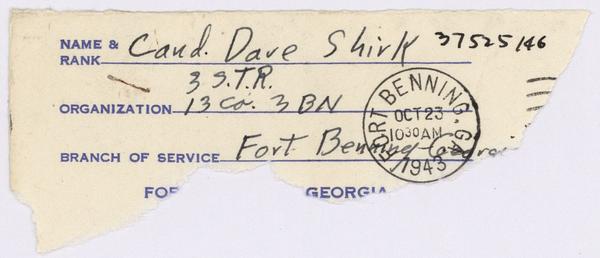 NAME & RANK Cand. Dave Shirk 37525146
3 S.T.R.
ORGANIZATION 13 Co. 3 BN
BRANCH OF SERVICE Fort Benning Georgi
FORT BENNING, GA.
OCT 23
10 30 AM
1943
FO GEORGIA